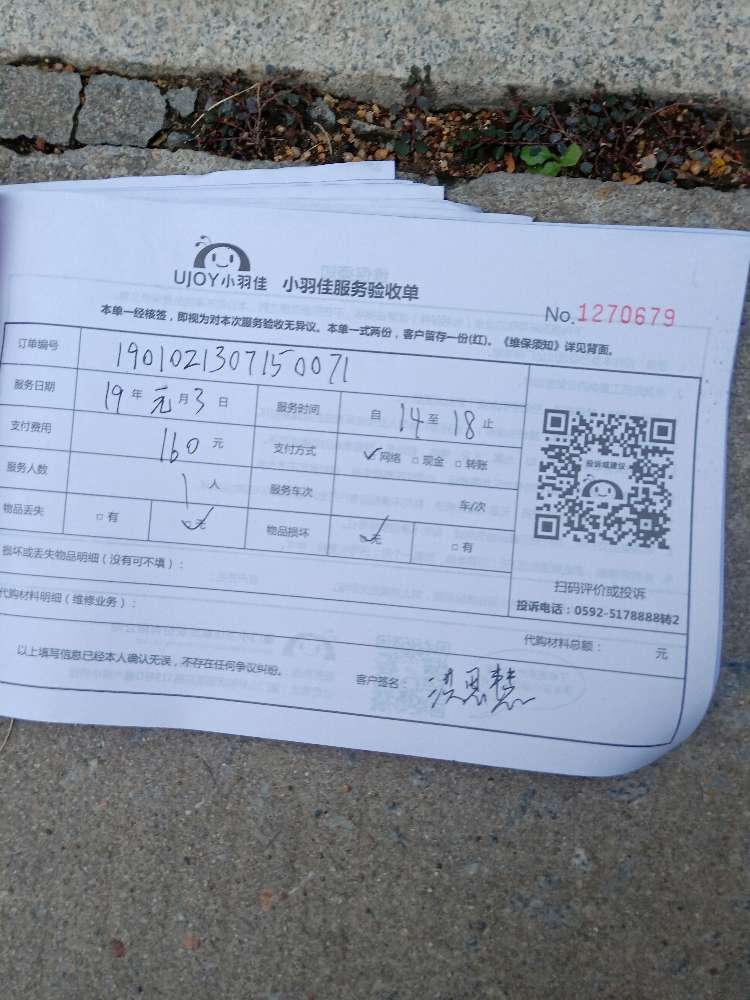 UJOY小羽佳 小羽佳服务验收单
No.1270679
本单一经核签，即视为对本次服务验收无异议。本单一式两份，客户留存一份(红)。《维保须知》详见背面。
订单编号 1901021307150071
服务日期 19年元月3日 服务时间 自14至18止
支付费用 160元 支付方式 ✓网络 □现金 □转账
服务人数 1人 服务车次 车/次
物品丢失 □有 ☑无 物品损坏 ☑无 □有
投诉或建议
扫码评价或投诉
投诉电话：0592-5178888转2
损坏或丢失物品明细（没有可不填）：
代购材料明细（维修业务）： 代购材料总额： 元
以上填写信息已经本人确认无误，不存在任何争议纠纷。 客户签名：洪思慧